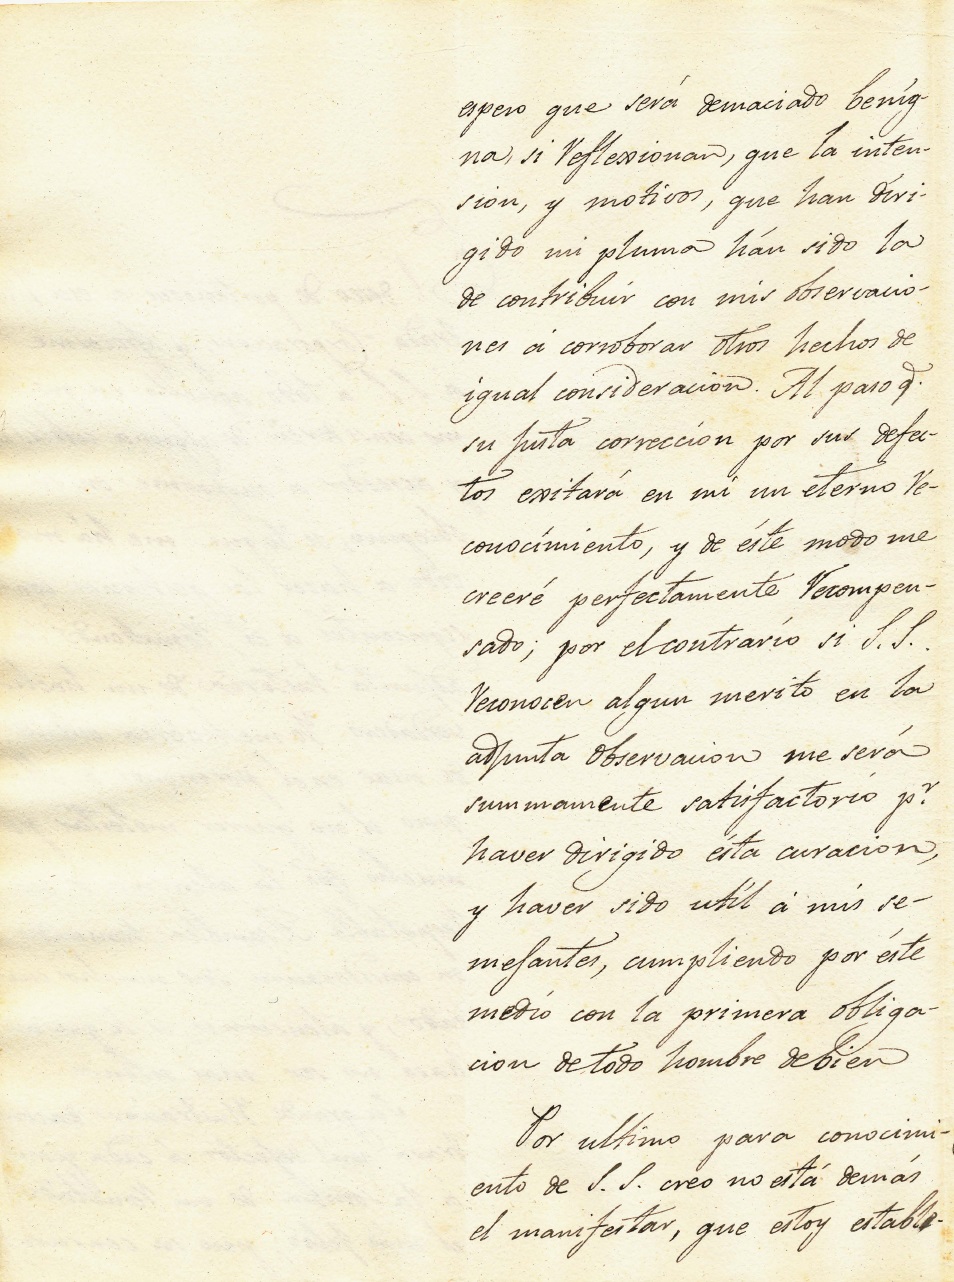 espero que será demaciado benig-
na, si reflexionan, que la inten-
sion, y motivos, que han diri-
gido mi pluma hán sido la
de contribuir con mis observacio-
nes á corroborar otros hechos de
igual consideracion. Al paso q.
su justa correccion por sus defec-
tos exitará en mi un eterno re-
conocimiento, y de éste modo me
creeré perfectamente recompen-
sado; por el contrario si S.S.
reconocen algun merito en la
adjunta observacion me será
summamente satisfactorio pr.
haver dirigido ésta curacion,
y haver sido util á mis se-
mejantes, cumpliendo por éste
medio con la primera obliga-
cion de todo hombre de bien
Por ultimo para conocimi-
ento de S. S. creo no está demás
el manifestar, que estoy estable-